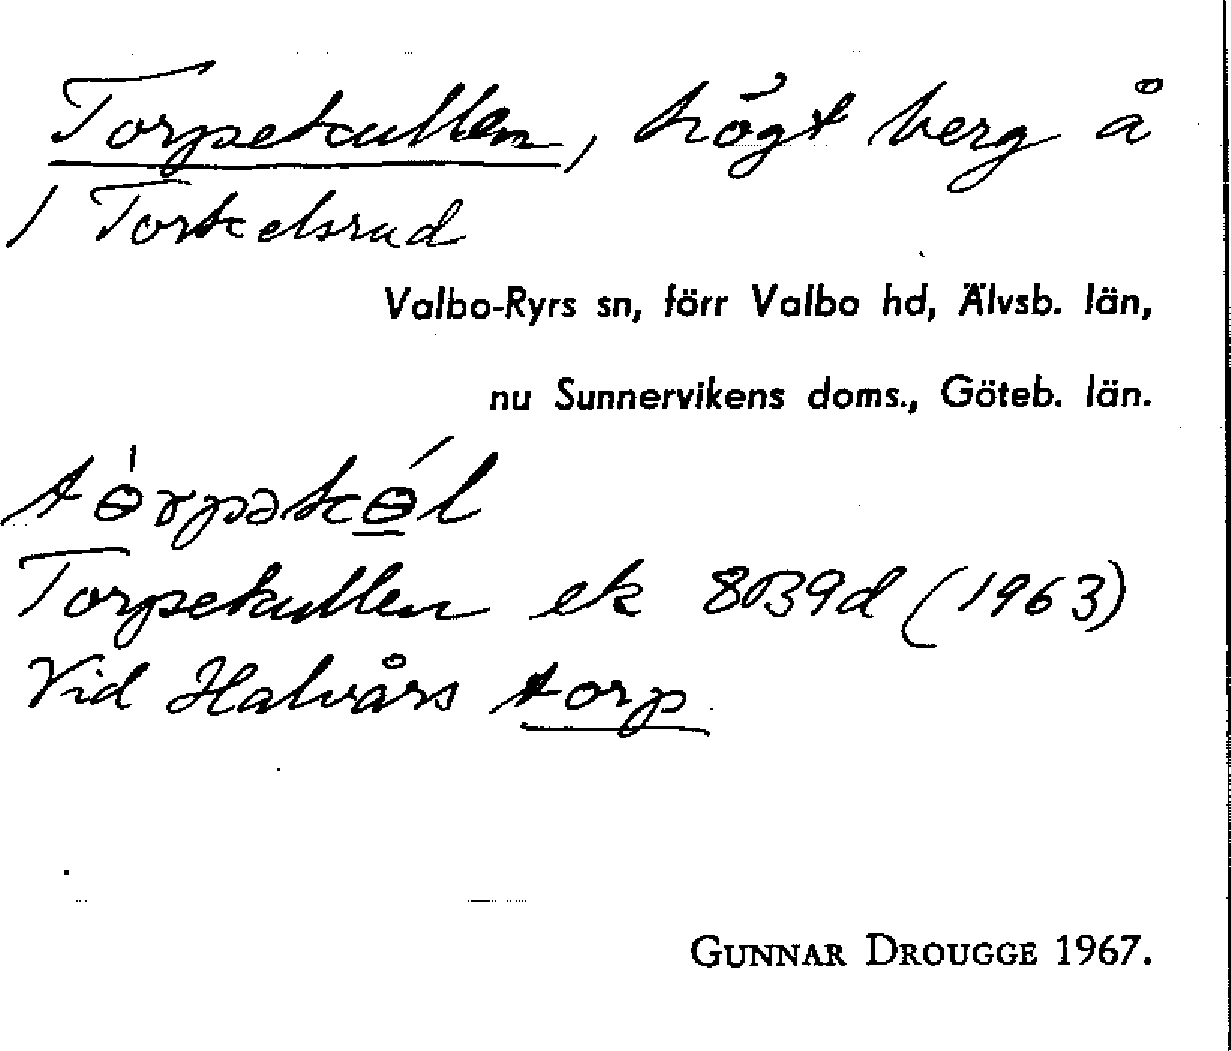 Torpekullen, högt berg å
1 Torkelsrud
Valbo-Ryrs sn, förr Valbo hd, Älvsb. län,
nu Sunnervikens doms., Göteb. län.
tɵ̀rpəkɵ́l
Torpekullen ek 8B9d (1963)
Vid Halvårs torp
GUNNAR DROUGGE 1967.